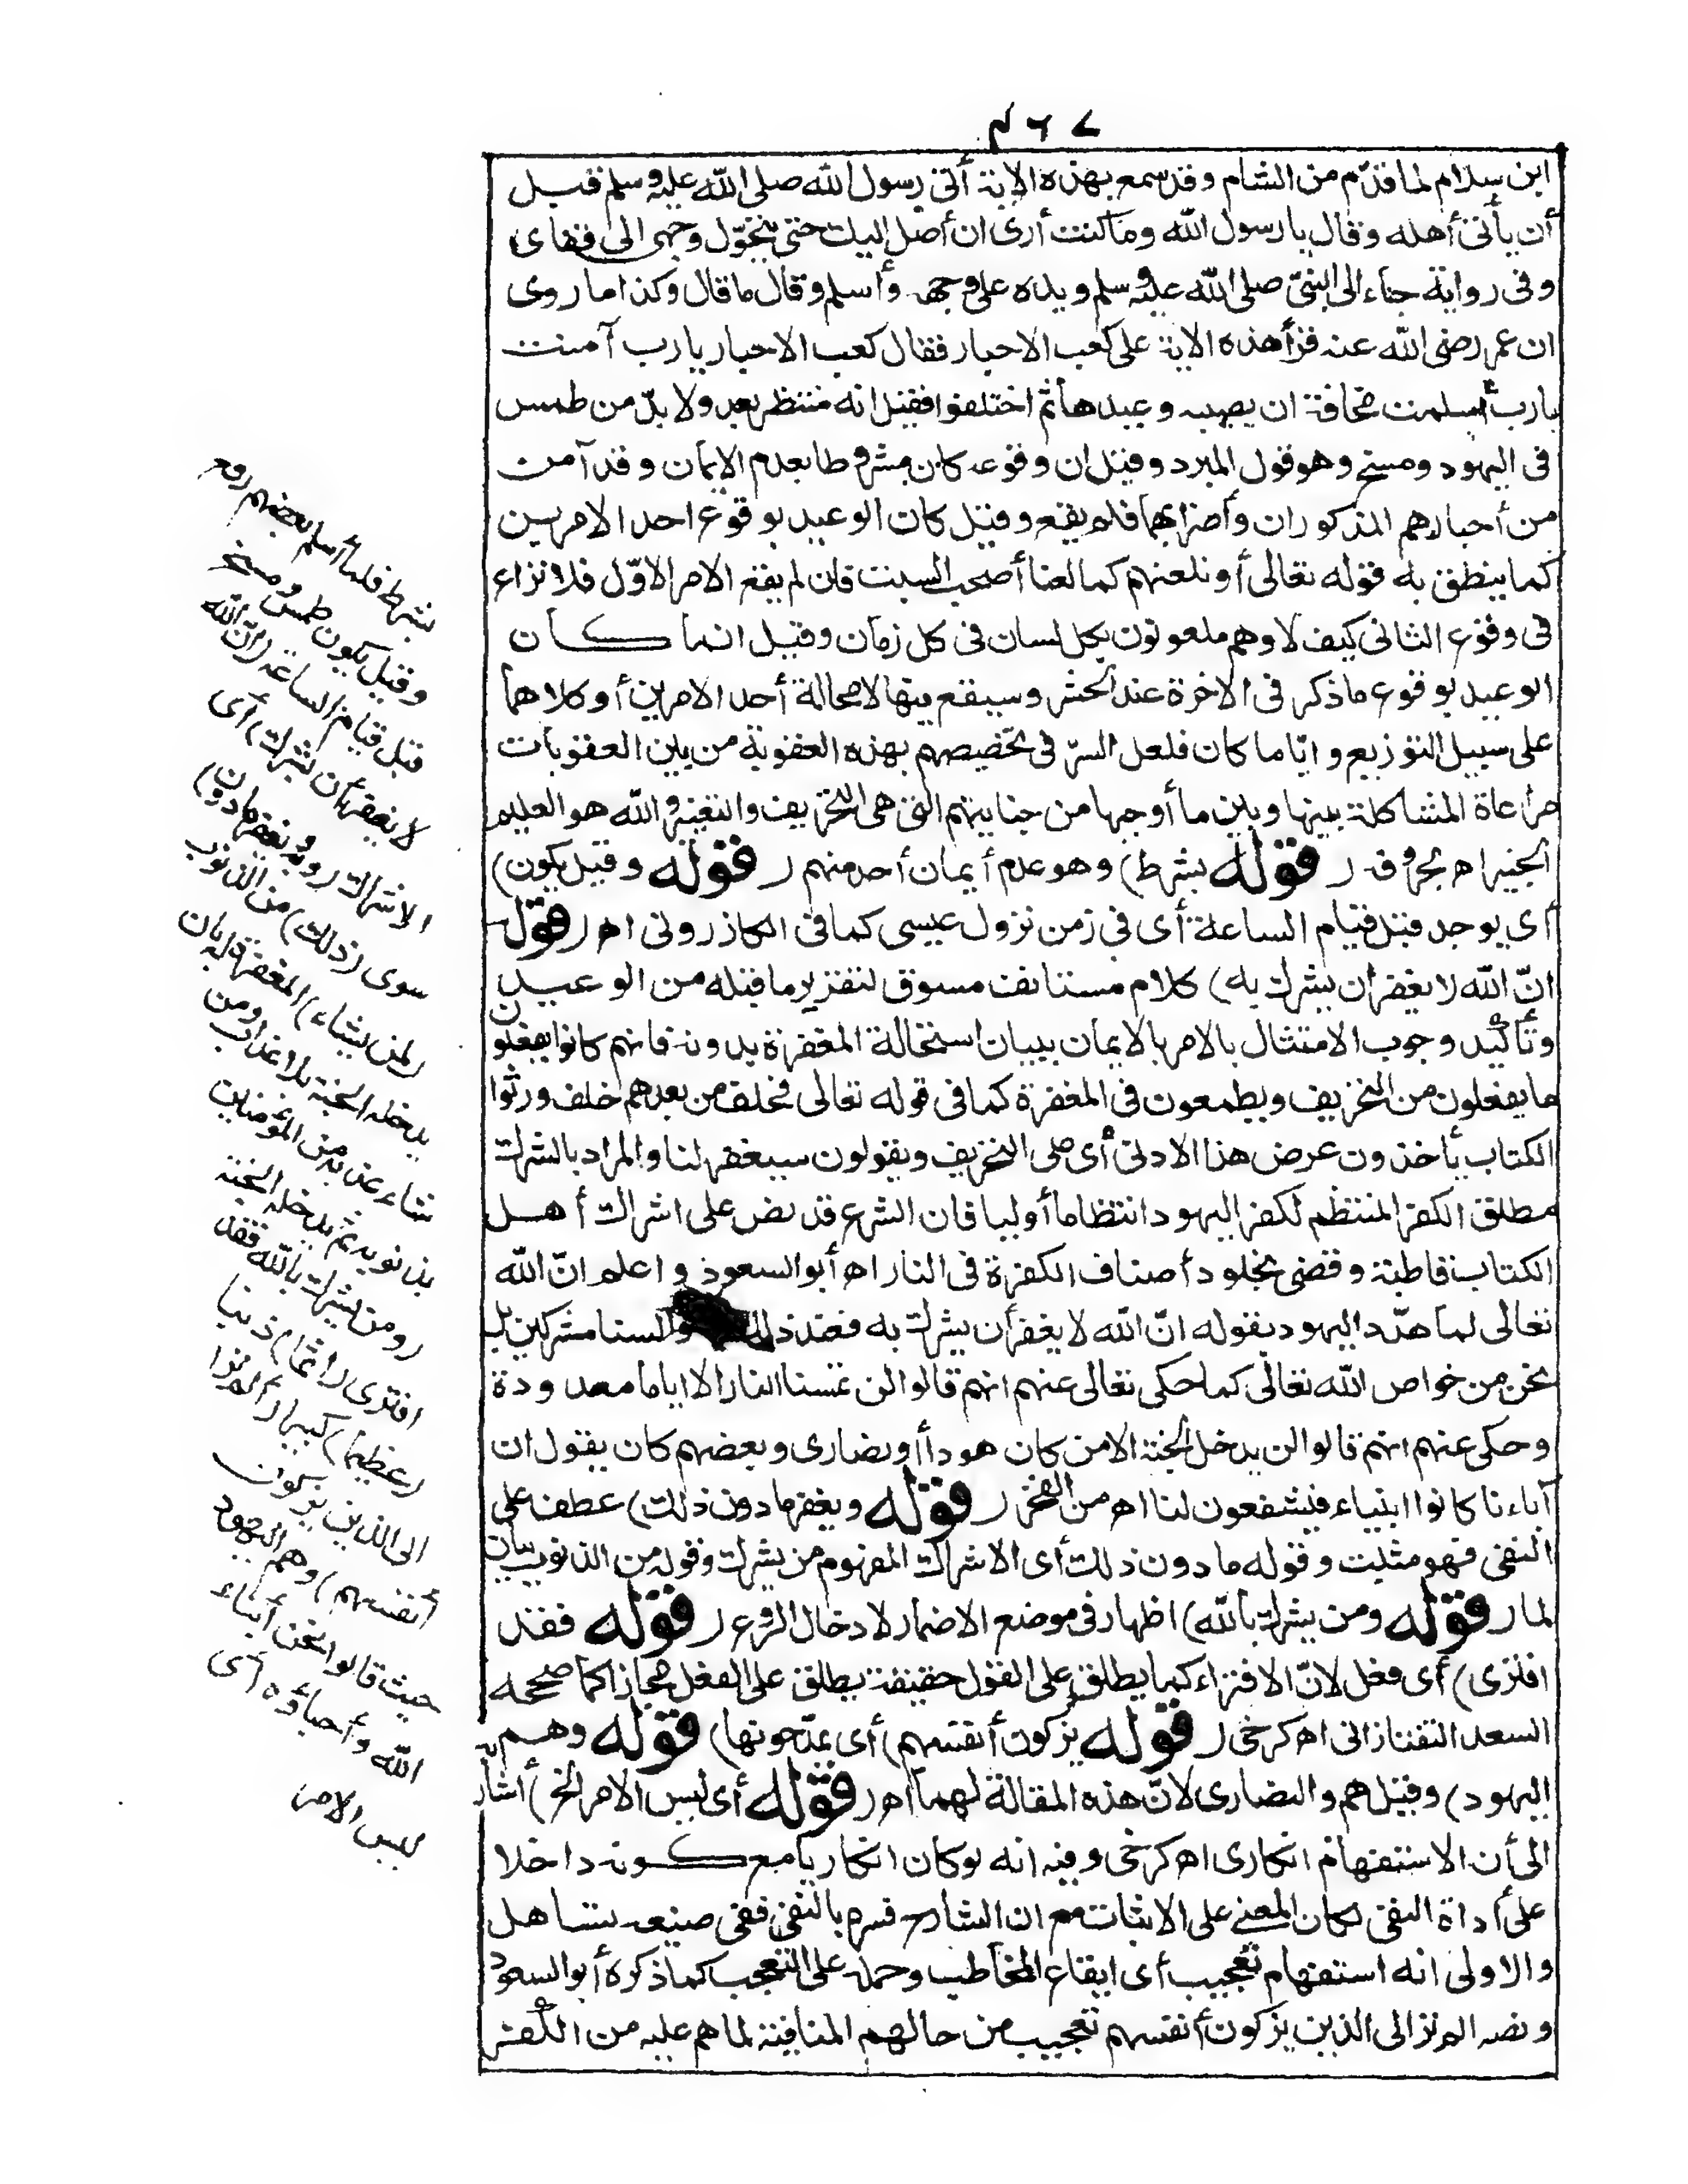 ٤٦٧
ابن سلام لما قدّم من الشام وقد سمع بهذه الاية أتى رسول الله صلى الله عليه وسلم قبل
أن يأتى أهله وقال يا رسول الله وما كنت أرى ان أصل اليك حتى يتحوّل وجهى الى قفاى
وفى رواية جاء الى النبىّ صلى الله عليه وسلم ويده على وجهه وأسلم وقال ما قال وكذا ما روى
ان عمر رضى الله عنه قرأ هذه الاية على كعب الاحبار فقال كعب الاحبار يا رب آمنت
يا رب أسلمت مخافة ان يصيبه وعيدها ثم اختلفوا فقيل انه منتظر بعد ولا بدّ من طمس
فى اليهود ومسخ وهو قول المبرد وقيل ان وقوعه كان مشروطا بعدم الايمان وقد آمن
من أحبارهم المذكوران وأضرابهما فلم يقع وقيل كان الوعيد بوقوع احد الامرين
كما ينطق به قوله تعالى أو نلعنهم كما لعنا أصحب السبت فان لم يقع الامر الاوّل فلا نزاع
فى وقوع الثانى كيف لا وهم ملعونون بكل لسان فى كل زمان وقيل انما كان
الوعيد بوقوع ما ذكر فى الاخرة عند الحشر وسيقع فيها لا محالة أحد الامرين أو كلاهما
على سبيل التوزيع وايّا ما كان فلعل السرّ فى تخصيصهم بهذه العقوبة من بين العقوبات
مراعاة المشاكلة بينها وبين ما أوجبها من جنايتهم التى هى التحريف والتغيير والله هو العليم
الخبير اه بحروفه ( قوله بشرط) وهو عدم أيمان أحد منهم ( قوله وقيل يكون)
أى يوجد قبل قيام الساعة أى فى زمن نزول عيسى كما فى الكازرونى اه ( قوله
انّ الله لا يغفر أن يشرك به) كلام مستانف مسوق لتقرير ما قبله من الوعيد
وتأكيد وجوب الامتثال بالامر بالايمان ببيان استحالة المغفرة بدونه فانهم كانوا يفعلون
ما يفعلون من التحريف ويطمعون فى المغفرة كما فى قوله تعالى فخلف من بعدهم خلف ورثوا
الكتاب يأخذون عرض هذا الادنى أى على التحريف ويقولون سيغفر لنا والمراد بالشرك
مطلق الكفر المنتظم لكفر اليهود انتظاما أوليا فان الشرع قد نص على اشراك أهل
الكتاب قاطبة وقضى بخلود أصناف الكفرة فى النار اه أبو السعود واعلم انّ الله
تعالى لما هدّد اليهود بقوله انّ الله لا يغفر أن يشرك به فعند ذلك قالوا لسنا مشركين بل
نحن من خواص الله تعالى كما حكى تعالى عنهم انهم قالوا لن تمسنا النار الا اياما معدودة
وحكى عنهم انهم قالوا لن يدخل الجنة الا من كان هودا أو نصارى وبعضهم كان يقول ان
آباءنا كانوا انبياء فيشفعون لنا اه من الفخر ( قوله ويغفر ما دون ذلك) عطف على
النفى فهو مثبت وقوله ما دون ذلك أى الاشراك المفهوم من يشرك وقوله من الذنوب بيان
لما ( قوله ومن يشرك بالله) اظهار فى موضع الاضمار لادخال الروع ( قوله فقد
افترى) أى فعل لانّ الافتراء كما يطلق على القول حقيقة يطلق على الفعل مجازا كما صححه
السعد التفتازانى اه كرخى ( قوله يزكون أنفسهم) أى يمدحونها) قوله وهم
اليهود) وقيل هم والنصارى لانّ هذه المقالة لهما اه ( قوله أى ليس الامر الخ) أشار به
الى أن الاستفهام انكارى اه كرخى وفيه انه لو كان انكاريا مع كونه داخلا
على أداة النفى لكان المعنى على الاثبات مع ان الشارح فسره بالنفى ففى صنيعه تساهل
والاولى انه استفهام تعجيب أى ايقاع المخاطب وحمله على التعجب كما ذكره أبو السعود
ونصه الم تر الى الذين يزكون أنفسهم تعجيب من حالهم المنافية لما هم عليه من الكفر
بشرط فلما أسلم بعضهم رفع
وقيل يكون طمس ومسخ
قبل قيام الساعة (انّ الله
لا يغفر أن يشرك) أى
الاشراك (به ويغفر ما دون)
سوى (ذلك) من الذنوب
(لمن يشاء) المغفرة له بان
يدخله الجنة بلا عذاب ومن
شاء عذبه من المؤمنين
بذنوبه ثم يدخله الجنة
(ومن يشرك بالله فقد
افترى اثما) ذنبا
(عظيما) كبيرا (ألم تر
الى الذين يزكون
أنفسهم) وهم اليهود
حيث قالوا نحن أبناء
الله وأحباؤه أى
ليس الامر